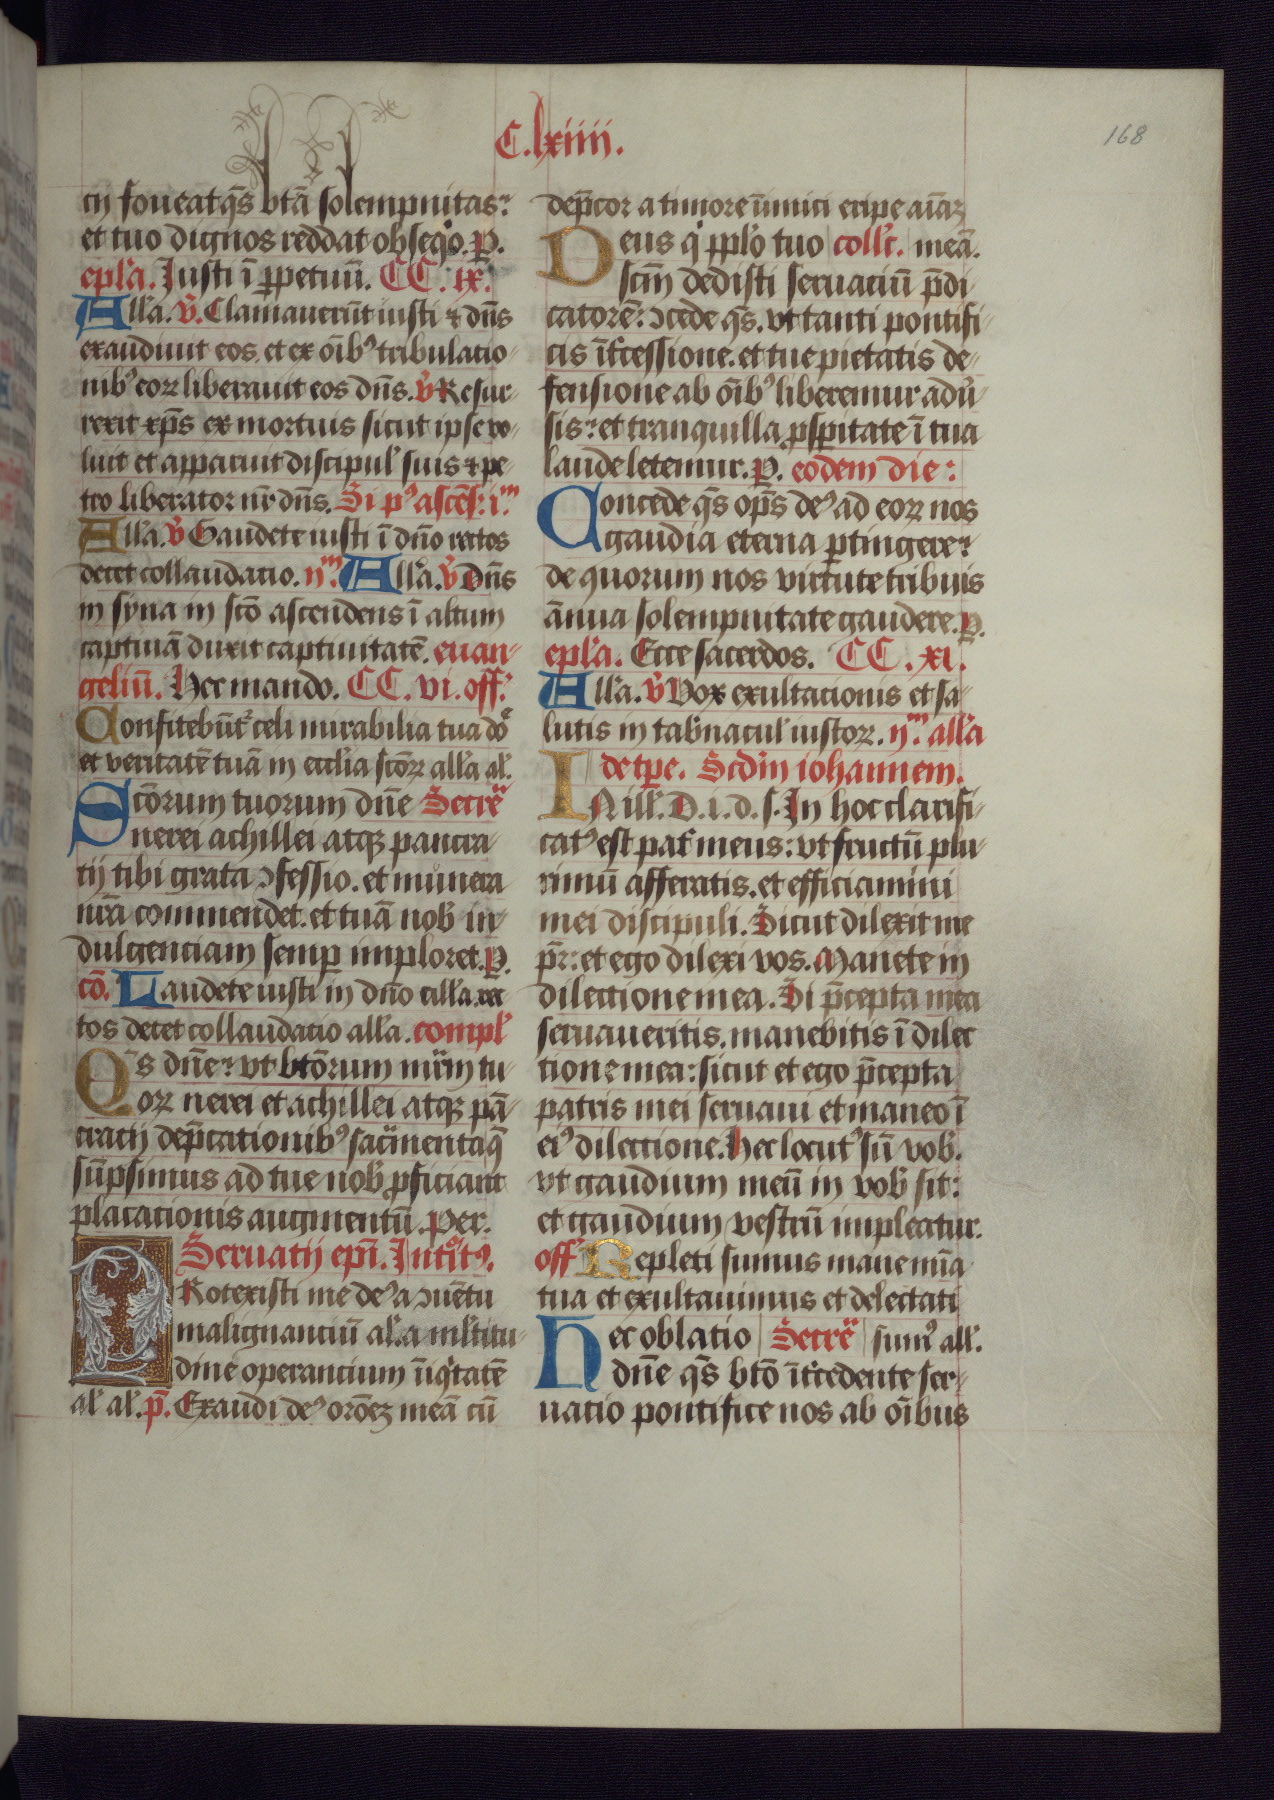 C.lxiiii.
168
cij foueat q̃s btã solempnitas:
et tuo dignos reddat obseqͦo. P̱.
epl'a. Iusti ĩ ꝑpetuũ. CC. ix.
All'a. v̾. Clamauerũt iusti ⁊ dñs
exaudiuit eos et ex oĩbꝰ tribulatio-
nibꝰ eoꝝ liberauit eos dñs. v̾ Resur-
rexit xp̃s ex mortuis sicut ipse vo-
luit et apparuit discipul' suis ⁊ pe-
tro liberator nr̃ dñs. Si pꝰ ascẽs: i.ᵐ
All'a. v̾ Gaudete iusti ĩ dño rectos
decet collaudatio. ijᵐ. All'a. v̾ Dñs
in syna in scõ ascendens ĩ altum
captiuã duxit captiuitatẽ. euan-
geliũ. Hec mando. CC. vi. off.
Confitebũt᷑ celi mirabilia tua dõe
et veritatẽ tuã in eccl'ia scõꝝ all'a al'.
Scõrum tuorum dñe Secrẽᵃ
nerei achillei atqꝫ pancra-
tij tibi grata ↄfessio. et munera
nr̃a commendet. et tuã nob' in-
dulgenciam semꝑ imploret. P̱.
cõ. Laudete iusti in dño all'a. rec
tos decet collaudatio all'a. compl'
Q̃s dñe: vt btõrum mr̃m tu-
oꝝ nerei et achillei atqꝫ pã-
cratij dep̃cationibꝰ sac̃mentaq̃
sũpsimus ad tue nob' ꝓficiant
placationis augmentũ. Per.
Seruatij epĩ. Intͦitꝰ.
Protexisti me deꝰ a ↄuẽtu
malignanciũ al'. a ml'titu-
dine operancium ĩiqͥtatẽ
al' al'. p̃. Exaudi deꝰ orõeꝫ meã cũ
dep̃cor a timore ĩimici eripe aĩaꝫ
Deus qͥ ppl'o tuo coll'c. meã.
scm̃ dedisti seruaciũ p̃di
catorẽ: ↄcede q̃s. vt tanti pontifi-
cis ĩt̾cessione. et tue pietatis de-
fensione ab oĩbꝰ liberemur adũ-
sis: et tranquilla ꝓsꝑitate ĩ tua
laude letemur. P̱. eodem die:
Concede q̃s op̃s deꝰ ad eoꝝ nos
gaudia eterna ꝑtingere:
de quorum nos virtute tribuis
ãnua solempnitate gaudere. P̱.
epl'a. Ecce sacerdos. CC. xi.
All'a. v̾ Vox exultacionis et sa-
lutis in tab'nacul' iustoꝝ. ijᵐ. all'a
de tp̃e. Scd'm iohannem.
IN ill'. D. i. d. s. In hoc clarifi-
catꝰ est pat̾ meus: vt fructũ plu-
rimũ afferatis. et efficiamini
mei discipuli. Sicut dilexit me
pr̃: et ego dilexi vos. Manete in
dilectione mea. Si p̃cepta mea
seruaueritis. manebitis ĩ dilec
tione mea: sicut et ego p̃cepta
patris mei seruaui et maneo ĩ
eiꝰ dilectione. Hec locutꝰ sũ vob'.
vt gaudium meũ in vob' sit:
et gaudium vestrũ impleatur.
off' Repleti sumus mane mĩa
tua et exultauimus et delectati
Hec oblatio Secrẽᵃ sumꝰ all'.
dñe q̃s btõ ĩt̾cedente ser-
uatio pontifice nos ab oĩbus